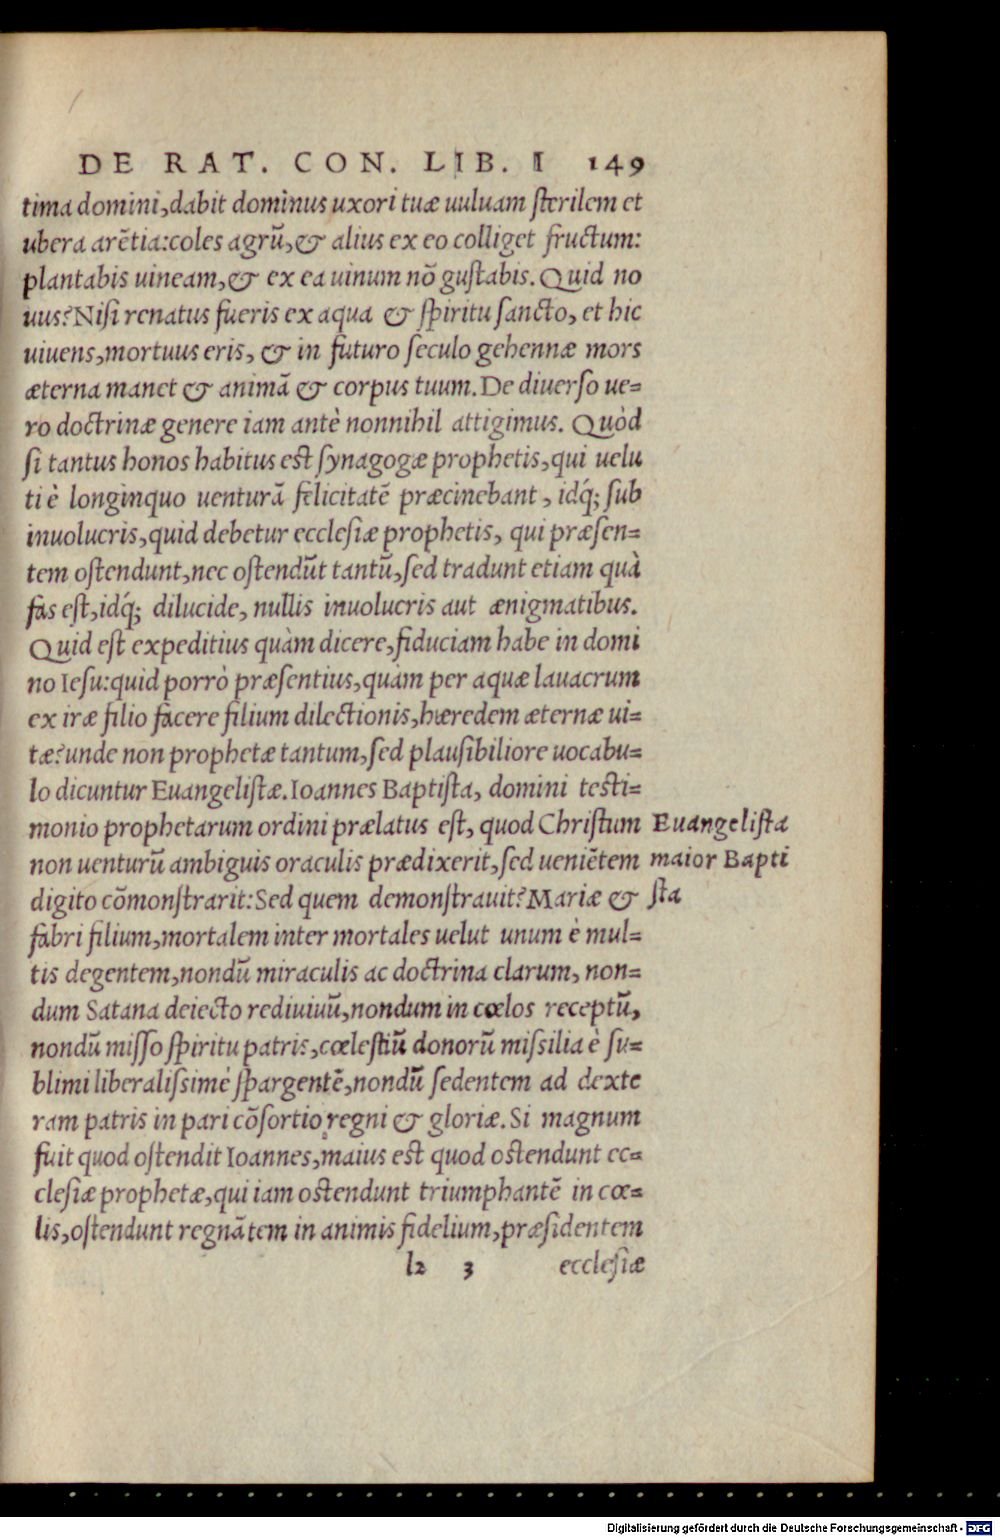 DE RAT. CON. LIB. I 149
tima domini,dabit dominus uxori tuæ uuluam sterilem et
ubera arẽtia:coles agrũ,& alius ex eo colliget fructum:
plantabis uineam,& ex ea uinum nõ gustabis. Quid no
uus?Nisi renatus fueris ex aqua & spiritu sancto, et hic
uiuens,mortuus eris, & in futuro seculo gehennæ mors
æterna manet & animã & corpus tuum. De diuerso ue=
ro doctrinæ genere iam antè nonnihil attigimus. Quòd
si tantus honos habitus est synagogæ prophetis,qui uelu
ti è longinquo uenturã felicitatẽ præcinebant, idq́; sub
inuolucris,quid debetur ecclesiæ prophetis, qui præsen=
tem ostendunt,nec ostendũt tantũ,sed tradunt etiam quà
fas est,idq́; dilucide, nullis inuolucris aut ænigmatibus.
Quid est expeditius quàm dicere,fiduciam habe in domi
no Iesu:quid porrò præsentius,quàm per aquæ lauacrum
ex iræ filio facere filium dilectionis,hæredem æternæ ui=
tæ?unde non prophetæ tantum,sed plausibiliore uocabu=
lo dicuntur Euangelistæ.Ioannes Baptista, domini testi=
monio prophetarum ordini prælatus est, quod Christum
non uenturũ ambiguis oraculis prædixerit,sed ueniẽtem
digito cõmonstrarit:Sed quem demonstrauit?Mariæ &
fabri filium,mortalem inter mortales uelut unum è mul=
tis degentem,nondũ miraculis ac doctrina clarum, non=
dum Satana deiecto rediuiuũ,nondum in cœlos receptũ,
nondũ misso spiritu patris,cœlestiũ donorũ missilia è su=
blimi liberalissimè spargentẽ,nondũ sedentem ad dexte
ram patris in pari cõsortio regni & gloriæ. Si magnum
fuit quod ostendit Ioannes,maius est quod ostendunt ec=
clesiæ prophetæ,qui iam ostendunt triumphantẽ in cœ=
lis,ostendunt regnãtem in animis fidelium,præsidentem
l2 3 ecclesiæ
Euangelista
maior Bapti
sta
Digitalisierung gefördert durch die Deutsche Forschungsgemeinschaft - DFG